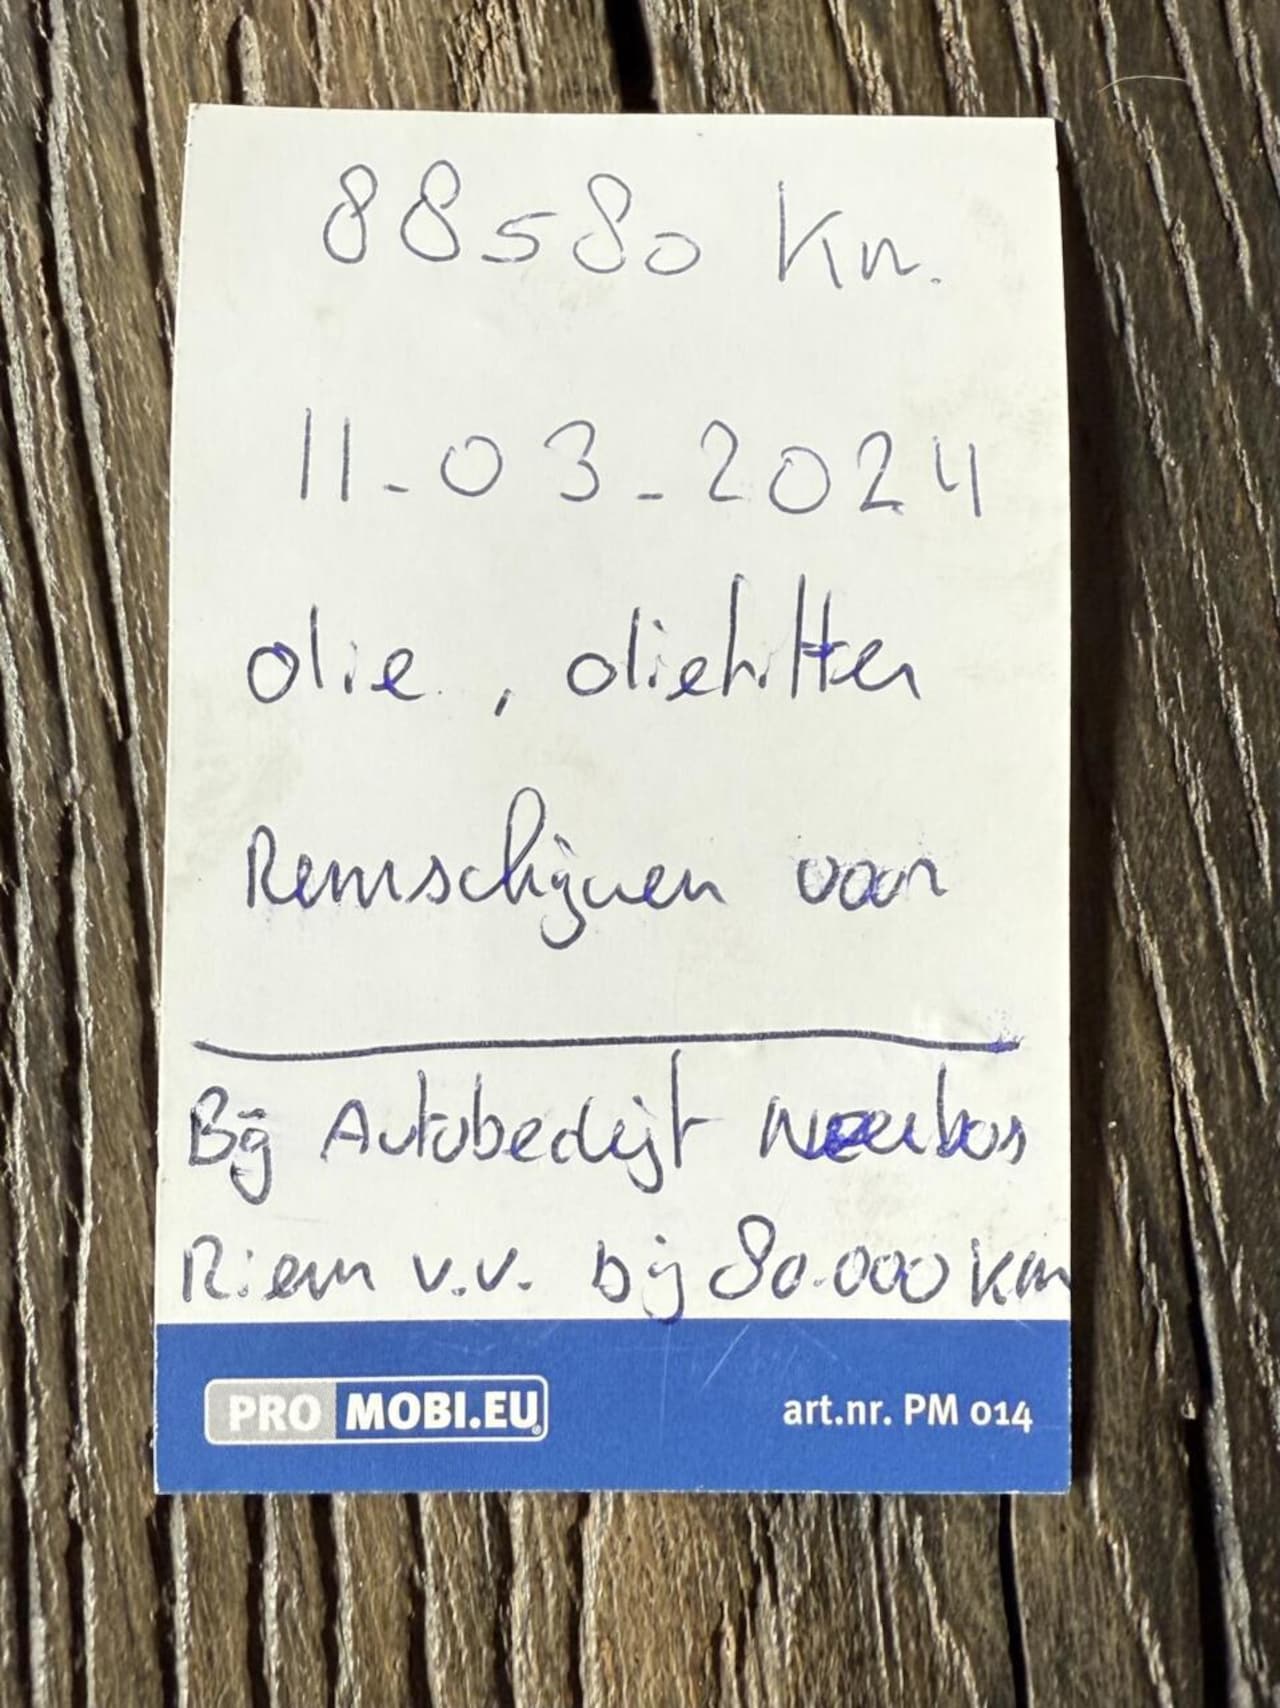 88580 Km.
11-03-2024
olie, oliefilter
Remschijven voor
Bij Autobedrijf Neerbos
Riem v.v. bij 80.000 km
PRO MOBI.EU
art.nr. PM 014